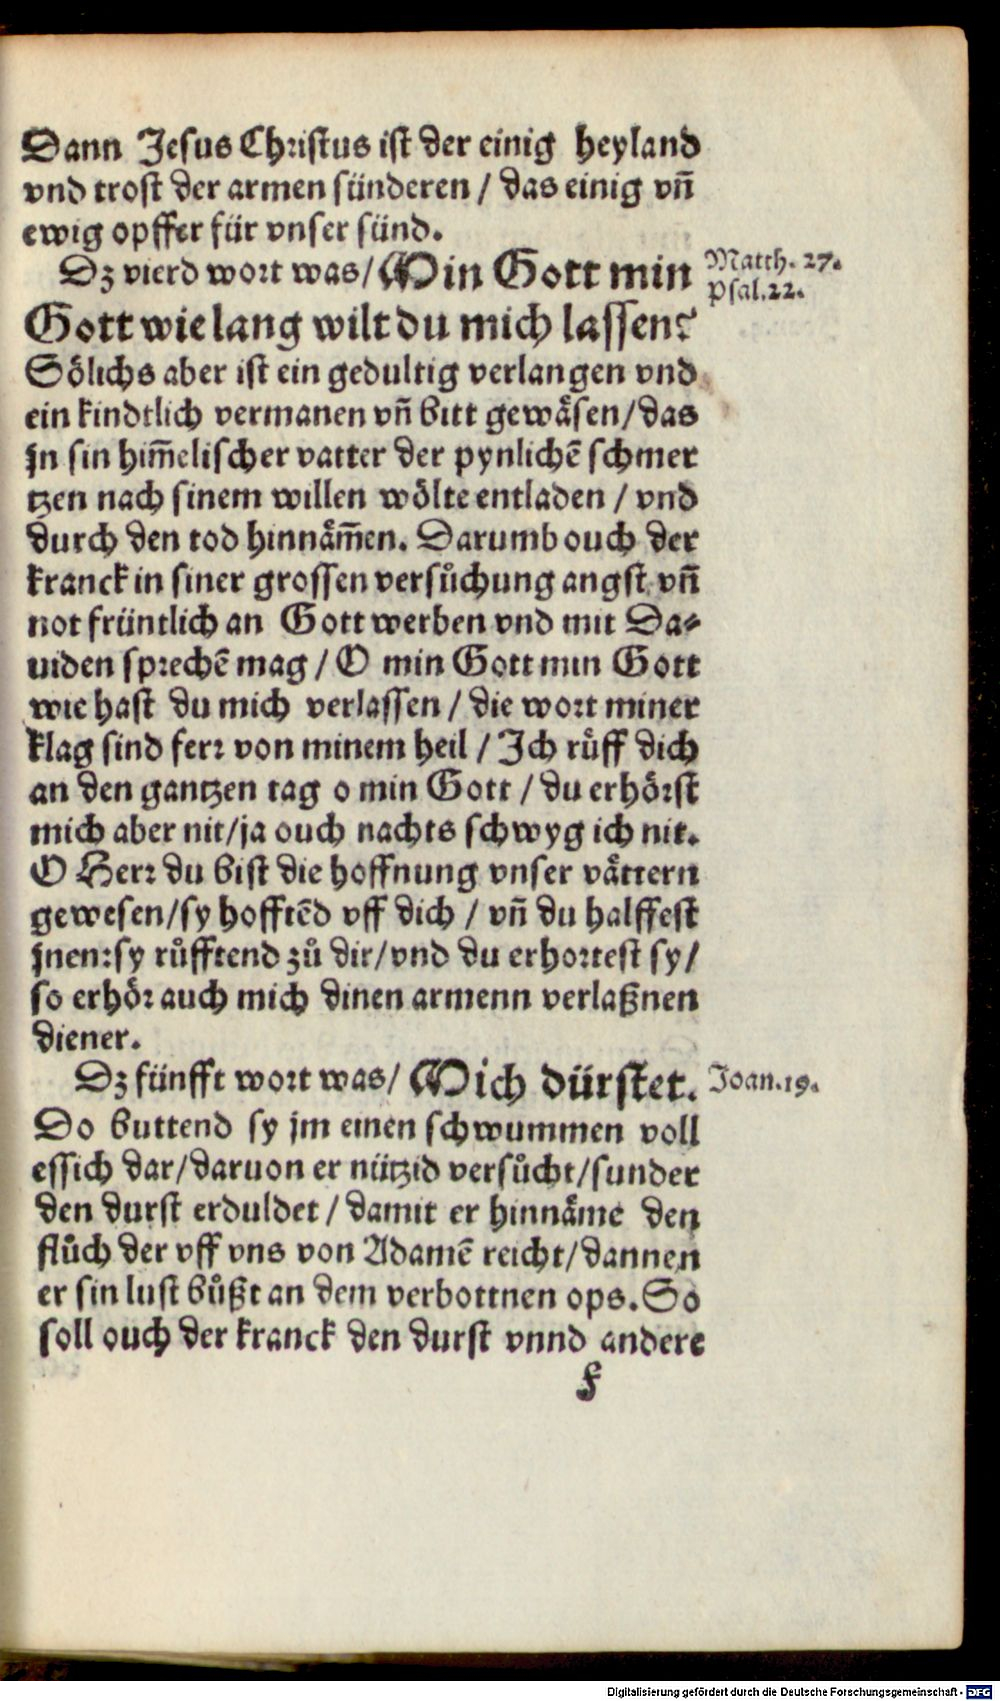 Dann Jesus Christus ist der einig heyland
vnd trost der armen sünderen / das einig vn̄
ewig opffer für vnser sünd.
Dz vierd wort was / Min Gott min
Matth. 27.
Psal. 22.
Gott wie lang wilt du mich lassen?
Sölichs aber ist ein gedultig verlangen vnd
ein kindtlich vermanen vn̄ bitt gewäsen / das
jn sin him̄elischer vatter der pynlichē schmer
tzen nach sinem willen wölte entladen / vnd
durch den tod hinnäm̄en. Darumb ouch der
kranck in siner grossen versůchung angst vn̄
not früntlich an Gott werben vnd mit Da⸗
uiden sprechē mag / O min Gott min Gott
wie hast du mich verlassen / die wort miner
klag sind ferr von minem heil / Ich růff dich
an den gantzen tag o min Gott / du erhörst
mich aber nit / ja ouch nachts schwyg ich nit.
O Herr du bist die hoffnung vnser vättern
gewesen / sy hofftēd vff dich / vn̄ du halffest
jnen: sy růfftend zů dir / vnd du erhortest sy /
so erhör auch mich dinen armenn verlaßnen
diener.
Dz fünfft wort was / Mich dürstet.
Joan. 19.
Do buttend sy jm einen schwummen voll
essich dar / daruon er nützid versůcht / sunder
den durst erduldet / damit er hinnäme den
flůch der vff vns von Adamē reicht / dannen
er sin lust bůßt an dem verbottnen ops. So
soll ouch der kranck den durst vnnd andere
f
Digitalisierung gefördert durch die Deutsche Forschungsgemeinschaft - DFG